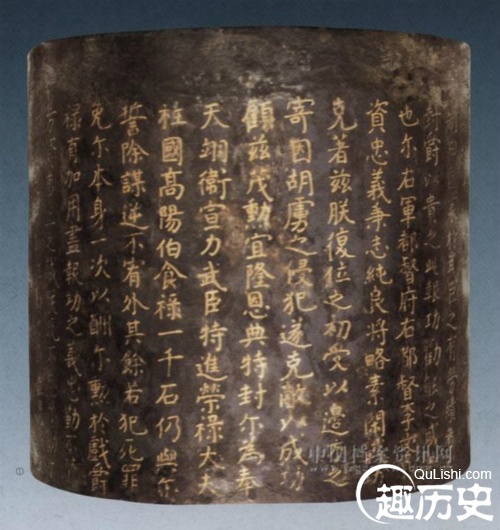 封爵以貴之此報功勸
也尔右軍都督府右都督李
資忠義事志純良將略素閑
克著兹朕復位之初受以邊
寄因胡虜之侵犯遂克敵以成功
顧兹茂勳宜隆恩典特封尔為奉
天翊衛宣力武臣特進榮祿大夫
柱國高陽伯食祿一千石仍與尔
誓除謀逆不宥外其餘若犯死罪
免尔本身一次以酬尔勲於戲爵
祿有加用盡報功之義忠勤
中国档案资讯网
QuLishi.com
趣历史